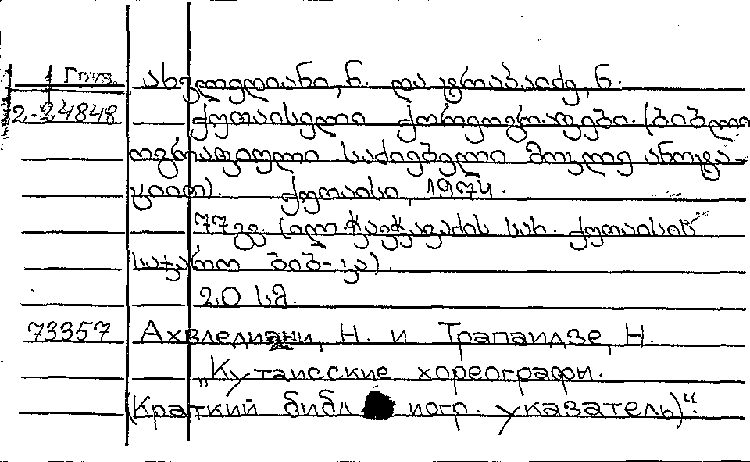 Груз. ახვლედიანი, ნ. და ტრაპაიძე, ნ.
2-24848 ქუთაისელი ქორეოგრაფები. (ბიბლი
ოგრაფიული საძიებელი მოკლე ანოტა-
ციით). ქუთაისი, 1974.
77 გვ. (ილ. ჭავჭავაძის სახ. ქუთაისის
საჯარო ბიბ-კა).
20 სმ.
73357 Ахвледиани, Н. и Трапаидзе, Н
„Кутаисские хореографы.
(Краткий библ иогр. указатель)“.